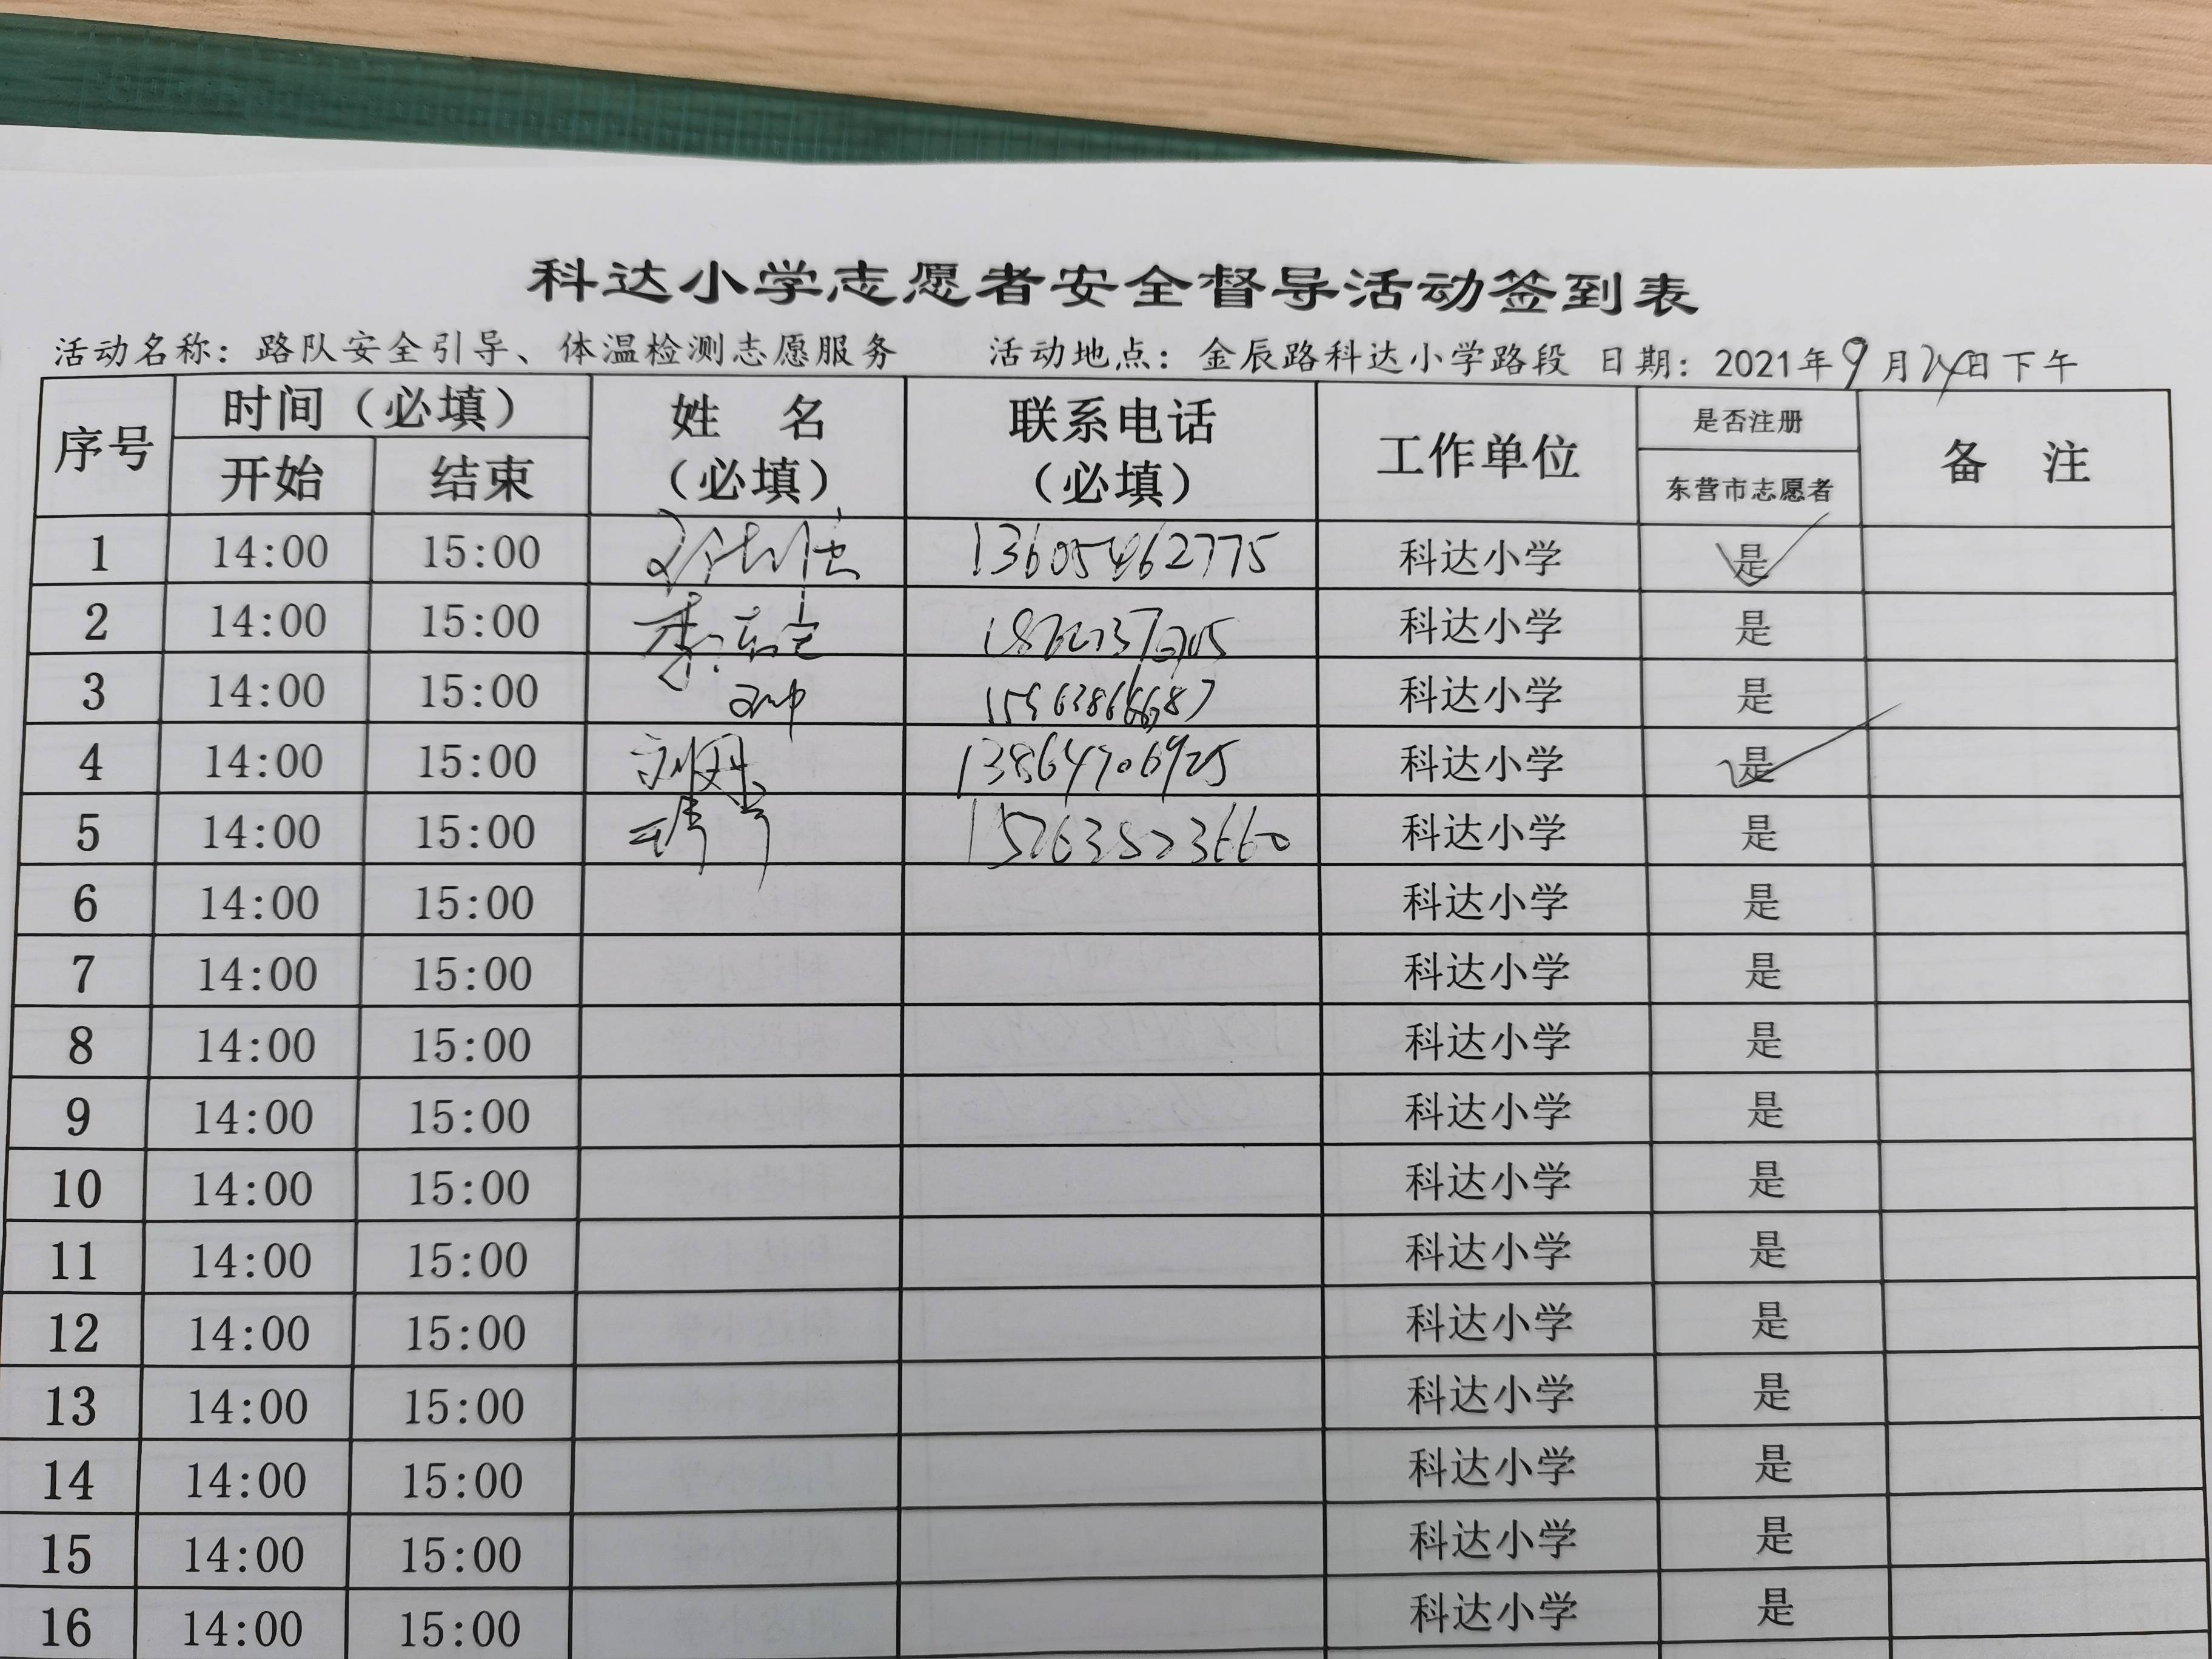 科达小学志愿者安全督导活动签到表
活动名称：路队安全引导、体温检测志愿服务 活动地点：金辰路科达小学路段 日期：2021年9月24日下午
序号 时间（必填） 姓 名（必填） 联系电话（必填） 工作单位 是否注册 备 注
开始 结束 东营市志愿者
1 14:00 15:00 13605462775 科达小学 是
2 14:00 15:00 科达小学 是
3 14:00 15:00 科达小学 是
4 14:00 15:00 刘丹丹 13864706925 科达小学 是
5 14:00 15:00 15263823660 科达小学 是
6 14:00 15:00 科达小学 是
7 14:00 15:00 科达小学 是
8 14:00 15:00 科达小学 是
9 14:00 15:00 科达小学 是
10 14:00 15:00 科达小学 是
11 14:00 15:00 科达小学 是
12 14:00 15:00 科达小学 是
13 14:00 15:00 科达小学 是
14 14:00 15:00 科达小学 是
15 14:00 15:00 科达小学 是
16 14:00 15:00 科达小学 是